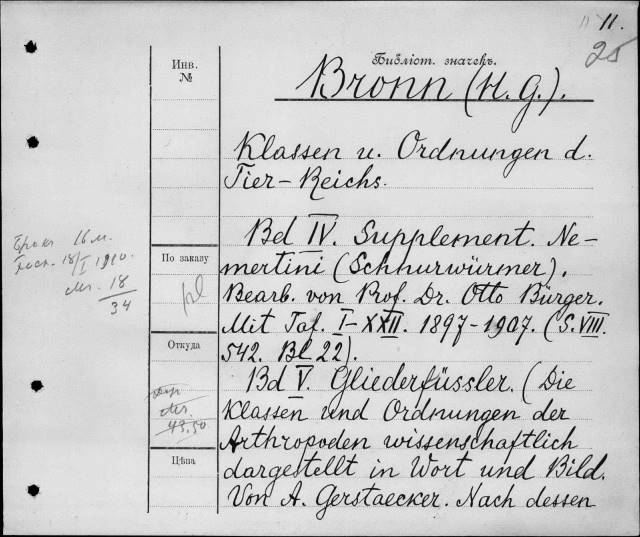 11.
25
Библіот. значекъ.
Инв.
№
Bronn (H. G.).
Klassen u. Ordnungen d.
Tier-Reichs.
Bd IV. Supplement. Ne-
mertini (Schnurwürmer).
Bearb. von Prof. Dr. Otto Bürger.
Mit Taf. I-XXII. 1897-1907. (S. VIII.
542. Bl 22).
Bd V. Gliederfüssler. (Die
Klassen und Ordnungen der
Arthropoden wissenschaftlich
dargestellt in Wort und Bild.
Von A. Gerstaecker. Nach dessen
По заказу
Откуда
43.50
Цѣна
16 м.
18/I 1910.
18
34